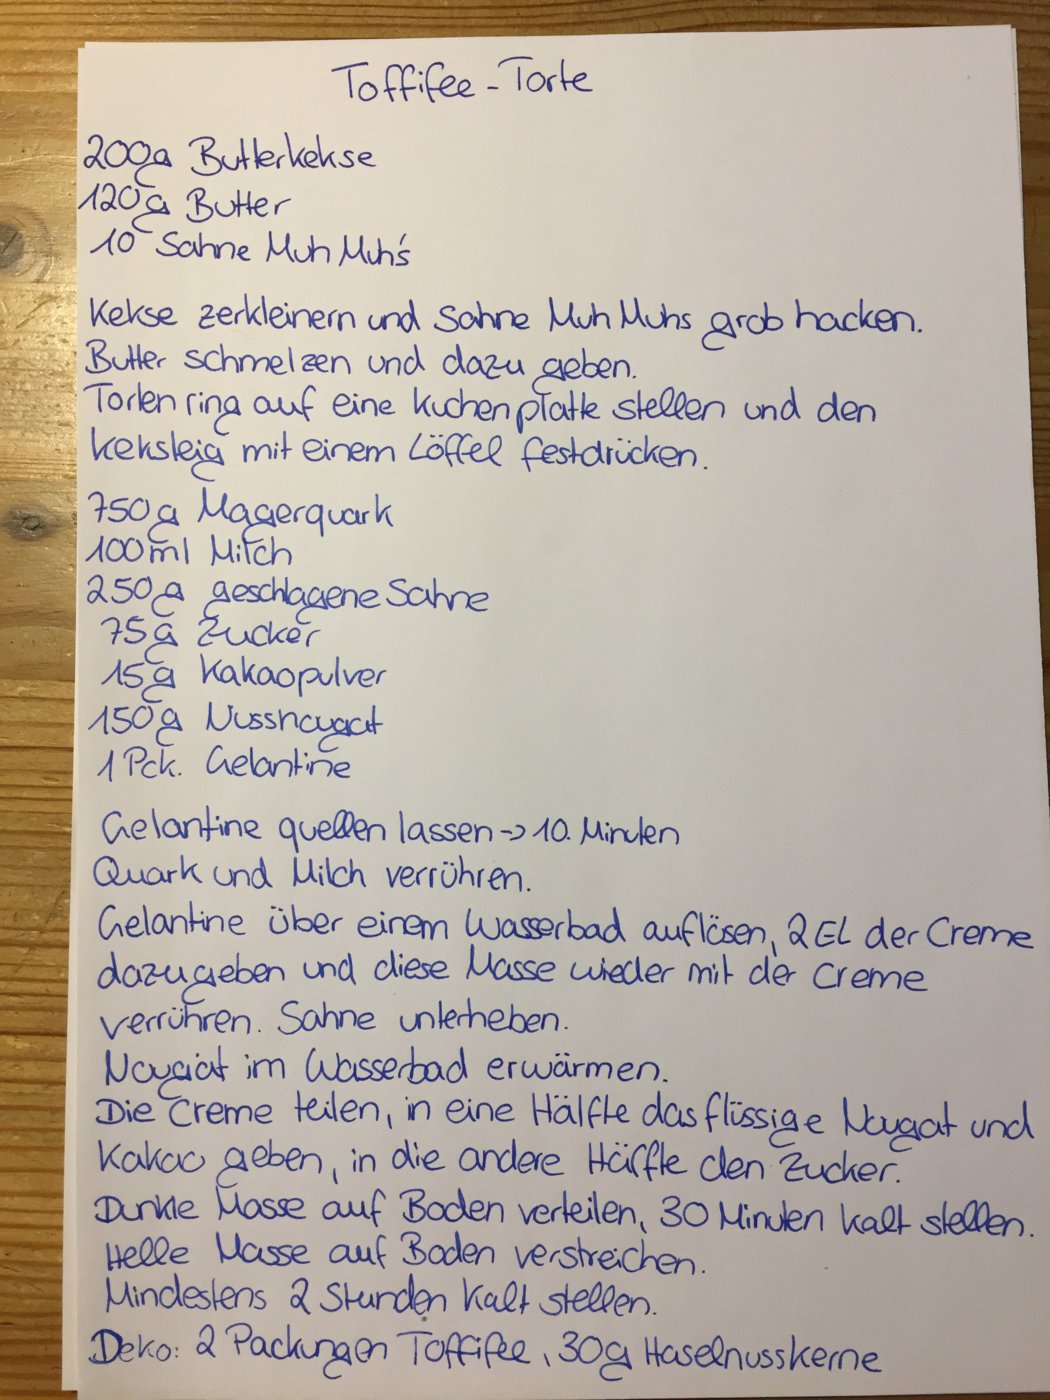 Toffifee-Torte
200g Butterkekse
120g Butter
10 Sahne Muh Muh's
Kekse zerkleinern und Sahne Muh Muhs grob hacken.
Butter schmelzen und dazu geben.
Tortenring auf eine Kuchenplatte stellen und den
Keksteig mit einem Löffel festdrücken.
750g Magerquark
100ml Milch
250g geschlagene Sahne
75g Zucker
15g Kakaopulver
150g Nussnougat
1 Pck. Gelantine
Gelantine quellen lassen -> 10. Minuten
Quark und Milch verrühren.
Gelantine über einem Wasserbad auflösen, 2 EL der Creme
dazugeben und diese Masse wieder mit der Creme
verrühren. Sahne unterheben.
Nougat im Wasserbad erwärmen.
Die Creme teilen, in eine Hälfte das flüssige Nougat und
Kakao geben, in die andere Hälfte den Zucker.
Dunkle Masse auf Boden verteilen, 30 Minuten kalt stellen.
Helle Masse auf Boden verstreichen.
Mindestens 2 Stunden kalt stellen.
Deko: 2 Packungen Toffifee, 30g Haselnusskerne